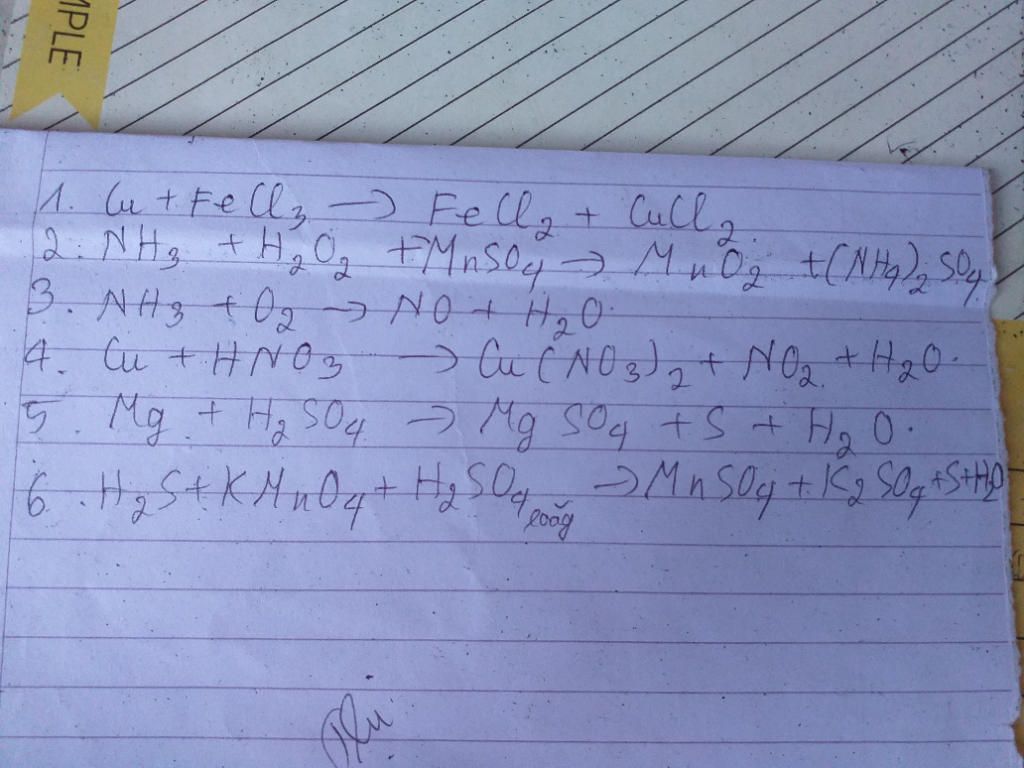 MPLE
1. Cu + FeCl3 → FeCl2 + CuCl2.
2. NH3 + H2O2 + MnSO4 → MnO2 + (NH4)2SO4
3. NH3 + O2 → NO + H2O.
4. Cu + HNO3 → Cu(NO3)2 + NO2 + H2O.
5. Mg + H2SO4 → MgSO4 + S + H2O.
6. H2S + KMnO4 + H2SO4 loãg → MnSO4 + K2SO4 + S + H2O